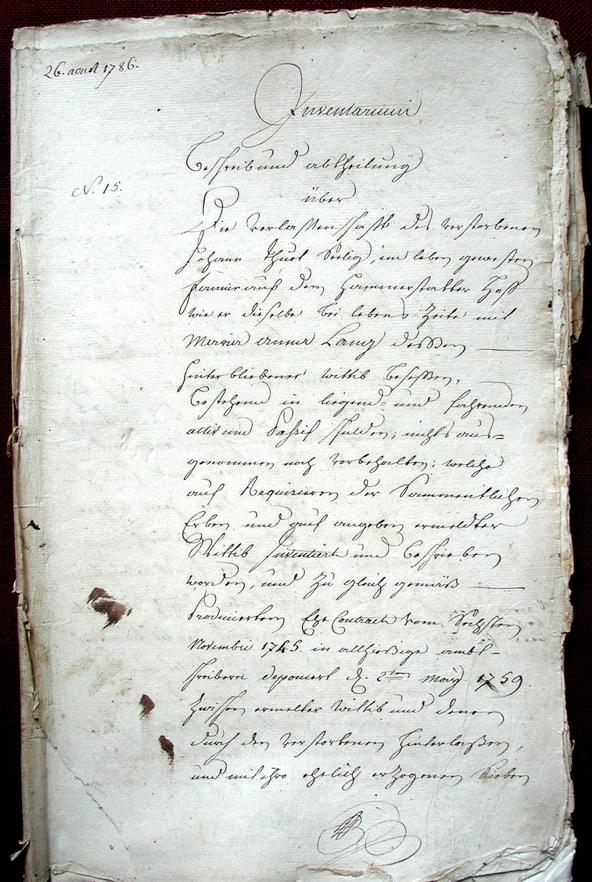 26. aout 1786.
Inventarium
Beschreib und abtheilung
N. 15.
über
Die Verlassenschafft des verstorbenen
Johann Seelig, im leben gewesten
auf dem Hammerstatter Hoff
wie er dieselbe bei lebens Zeite mit
anna Lang dessen
hinterbliebener wittib besessen,
bestehend in liegend- und fahrenden
activ und Passif schulden; nichts aus-
genommen noch vorbehalten; welche
auf Requiriren der Sammentlichen
Erben, und auf angeben ermeldter
Wittib Inventiert und beschrieben
worden, und zu gleich gemäß
Producierten Ehe Contract vom Sechsten
Novembris 1745 in allhießige ambt-
schreiberei deponiert d. 2ten 1759.
Zwischen ermelter wittib und denen
durch den verstorbenen hinterlaßen,
und mit ihro ehelich erzogenen Sieben